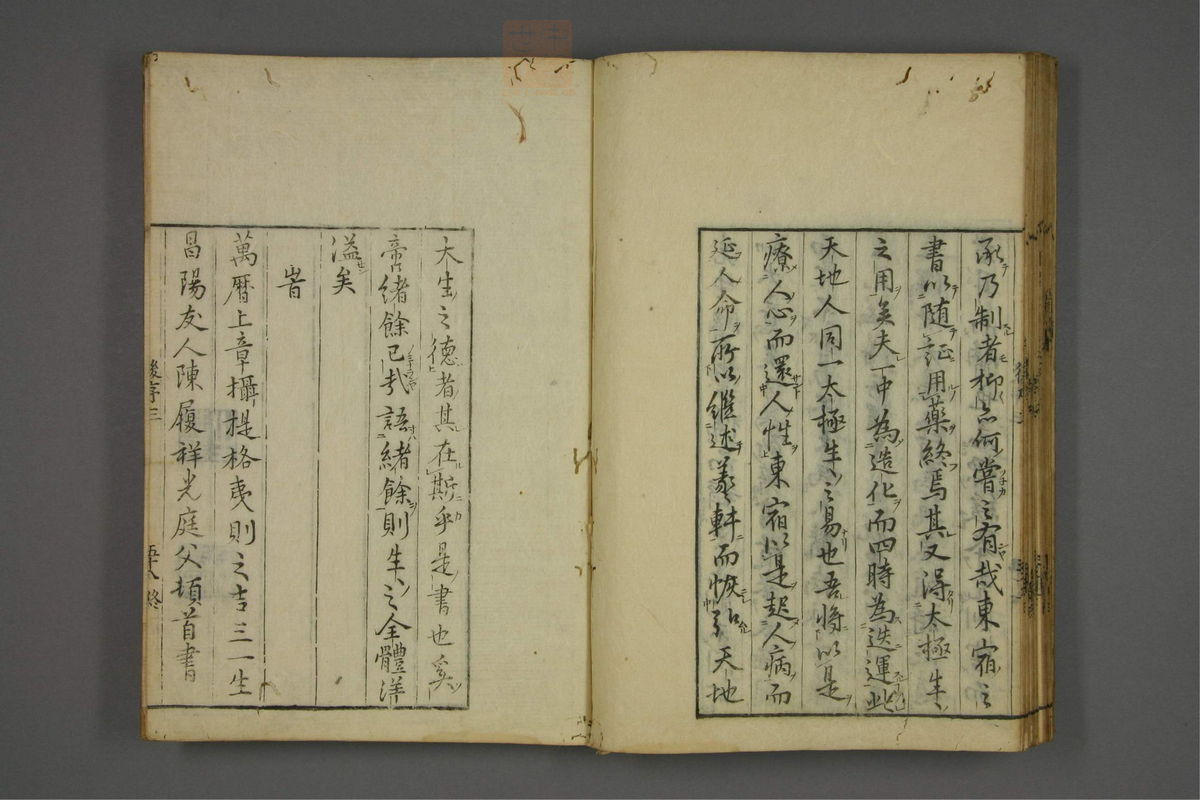 承乃制者抑亦何嘗之有哉東宿之
書以随証用藥終焉其又得太極生〻
之用矣夫一中為造化而四時為迭運此
天地人同一太極生〻之易也吾將以是
療人心而還人性東宿以是起人病而
延人命所以繼述羲軒而恢弘天地
大生之德者其在斯乎是書也奚
帝緒餘已哉語緒餘則生〻之全體洋
溢矣
旹
萬曆上章攝提格夷則之吉三一生
昌陽友人陳履祥光庭父頓首書
後序三